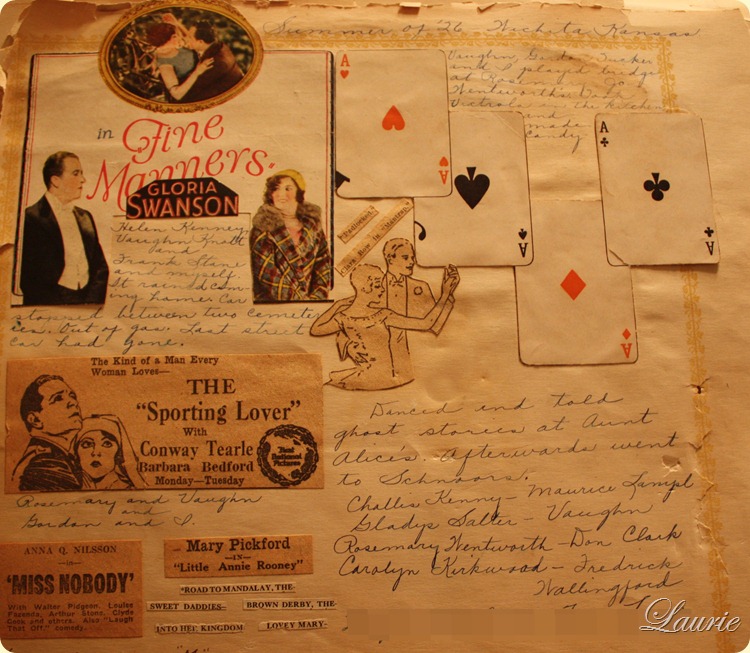 Summer of '26 Wichita Kansas
in
Fine
Manners.
GLORIA
SWANSON
Helen Kenney,
Vaughn Knott
and
Frank Slane
and myself.
It rained com-
ing home. Car
stopped between two cemeter
ies. Out of gas. Last street
car had gone.
A
A
A
A
A
A
A
Vaughn, Gordon Tucker
and I played bridge
at Rosemary
Wentworth's.
Victrola in the kitchen
and
made
candy.
The Kind of a Man Every
Woman Loves—
THE
"Sporting Lover"
With
Conway Tearle
Barbara Bedford
Monday—Tuesday
Pictures
Rosemary and Vaughn
and
Gordon and I.
Danced and told
ghost stories at Aunt
Alice's. Afterwards went
to Schnoors.
Challis Kenny - Maurice Lampl
Gladys Salter - Vaughn
Rosemary Wentworth - Don Clark
Carolyn Kirkwood - Fredrick
Wallingford
ANNA Q. NILSSON
—in—
'MISS NOBODY'
With Walter Pidgeon, Louise
Fazenda, Arthur Stone, Clyde
Cook and others. Also "Laugh
That Off," comedy.
Mary Pickford
—IN—
"Little Annie Rooney"
*ROAD TO MANDALAY, THE-
SWEET DADDIES-
BROWN DERBY, THE-
INTO HER KINGDOM
LOVEY MARY-
Laurie